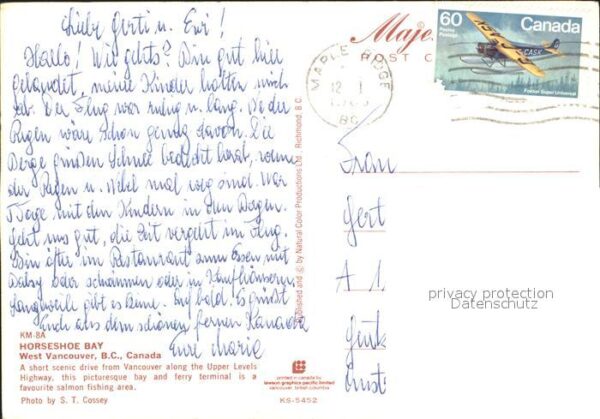 Liebe Gerti u. Evi!
Hallo! Wie gehts? Bin gut hier
gelandet, meine Kinder holten mich
ab. Der Flug war ruhig u. lang. So der
Regen wäre schon genug davon. Die
Berge Schnee bedeckt herab, wenn
der Regen u. Nebel mal weg sind. War
Tage mit den Kindern in den Bergen.
Geht uns gut, die Zeit vergeht im Flug.
Bin öfter im Restaurant zum Essen mit
oder schwimmen oder in Kaufhäusern
Langweile gibt es keine. Auf bald. Es grüsst
Euch aus dem schönen fernen Kanada
Eure Marie
KM-8A
HORSESHOE BAY
West Vancouver, B.C., Canada
A short scenic drive from Vancouver along the Upper Levels
Highway, this picturesque bay and ferry terminal is a
favourite salmon fishing area.
Photo by S. T. Cossey
Published and © by Natural Color Productions Ltd. Richmond, B.C.
POST C
MAPLE RIDGE
BC
60
Canada
Postes
Postage
CF-CASK
Fokker Super Universal
Frau
Gert
A 1
privacy protection
Datenschutz
printed in canada by
lawson graphics pacific limited
vancouver, british columbia
KS-5452